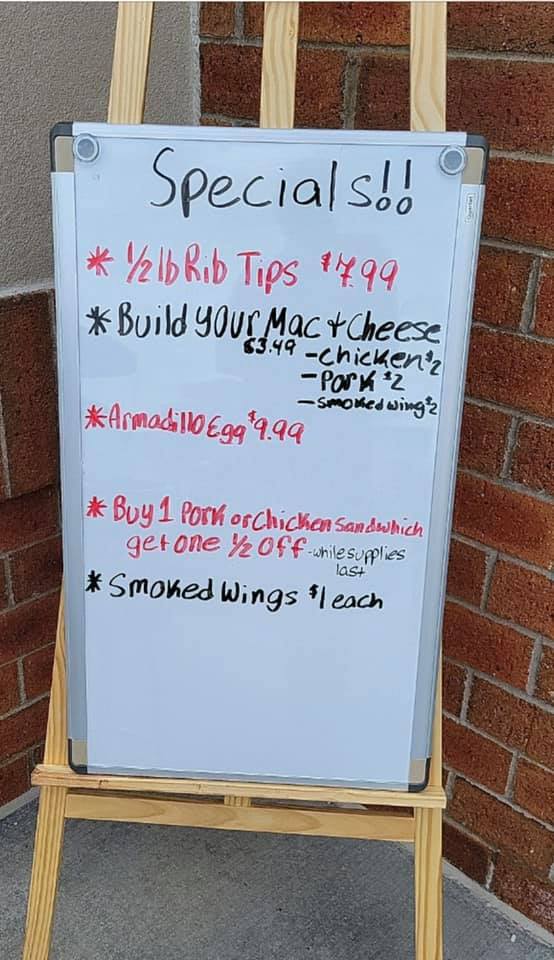 Specials!!
* 1/2 lb Rib Tips $7.99
* Build your Mac + Cheese
$3.49 - chicken $2
- Pork $2
- smoked wing $2
* Armadillo Egg $9.99
* Buy 1 Pork or Chicken Sandwhich
get one 1/2 off - while supplies
last
* Smoked Wings $1 each